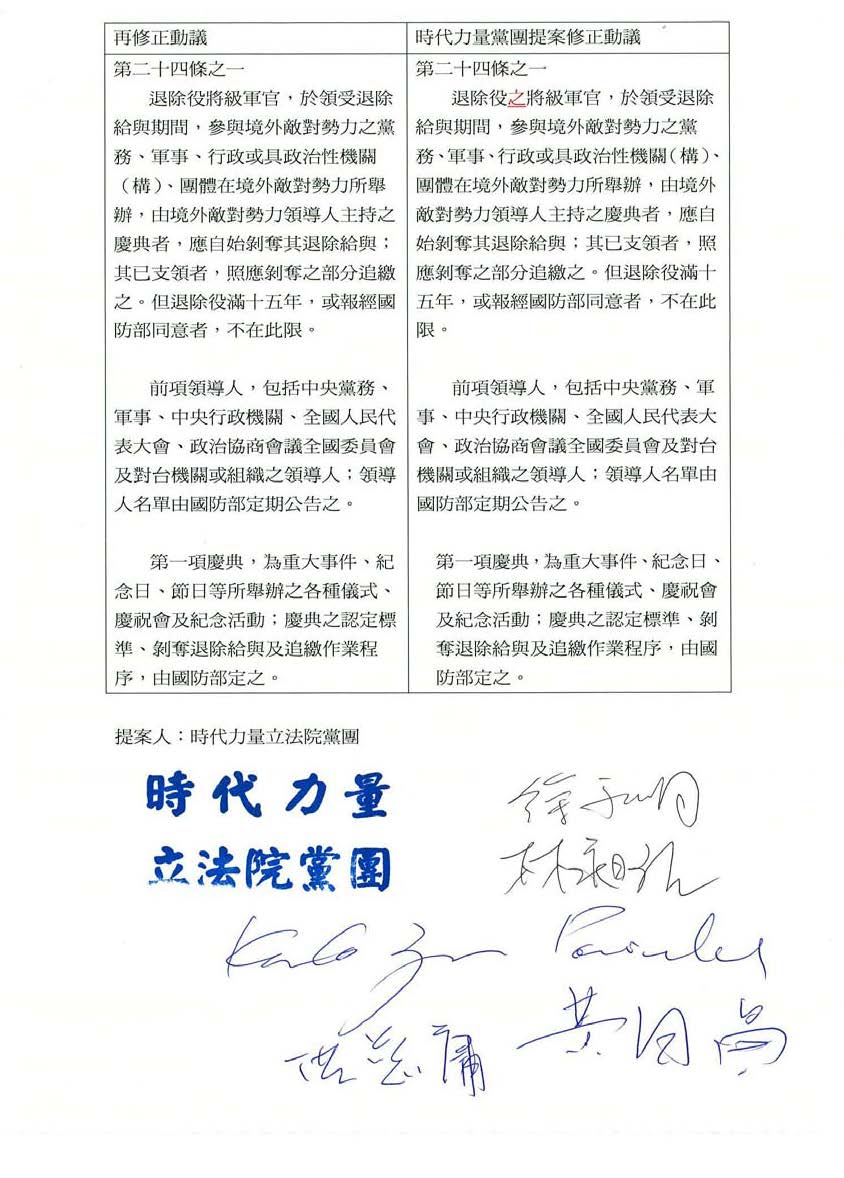 再修正動議
第二十四條之一
退除役將級軍官，於領受退除
給與期間，參與境外敵對勢力之黨
務、軍事、行政或具政治性機關
（構）、團體在境外敵對勢力所舉
辦，由境外敵對勢力領導人主持之
慶典者，應自始剝奪其退除給與；
其已支領者，照應剝奪之部分追繳
之。但退除役滿十五年，或報經國
防部同意者，不在此限。
前項領導人，包括中央黨務、
軍事、中央行政機關、全國人民代
表大會、政治協商會議全國委員會
及對台機關或組織之領導人；領導
人名單由國防部定期公告之。
第一項慶典，為重大事件、紀
念日、節日等所舉辦之各種儀式、
慶祝會及紀念活動；慶典之認定標
準、剝奪退除給與及追繳作業程
序，由國防部定之。
時代力量黨團提案修正動議
第二十四條之一
退除役之將級軍官，於領受退除
給與期間，參與境外敵對勢力之黨
務、軍事、行政或具政治性機關（構）、
團體在境外敵對勢力所舉辦，由境外
敵對勢力領導人主持之慶典者，應自
始剝奪其退除給與；其已支領者，照
應剝奪之部分追繳之。但退除役滿十
五年，或報經國防部同意者，不在此
限。
前項領導人，包括中央黨務、軍
事、中央行政機關、全國人民代表大
會、政治協商會議全國委員會及對台
機關或組織之領導人；領導人名單由
國防部定期公告之。
第一項慶典，為重大事件、紀念日、
節日等所舉辦之各種儀式、慶祝會
及紀念活動；慶典之認定標準、剝
奪退除給與及追繳作業程序，由國
防部定之。
提案人：時代力量立法院黨團
時代力量
立法院黨團
徐永明
林昶佐
洪慈庸
黃國昌